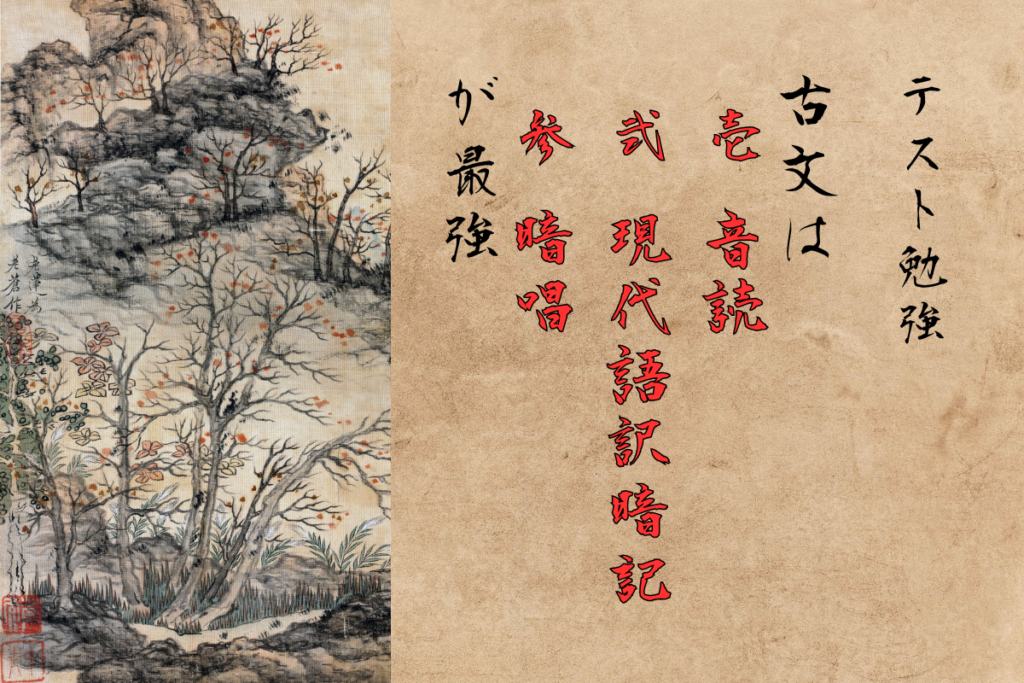 テスト勉強
古文は
壱 音読
弐 現代語訳暗記
参 暗唱
が最強